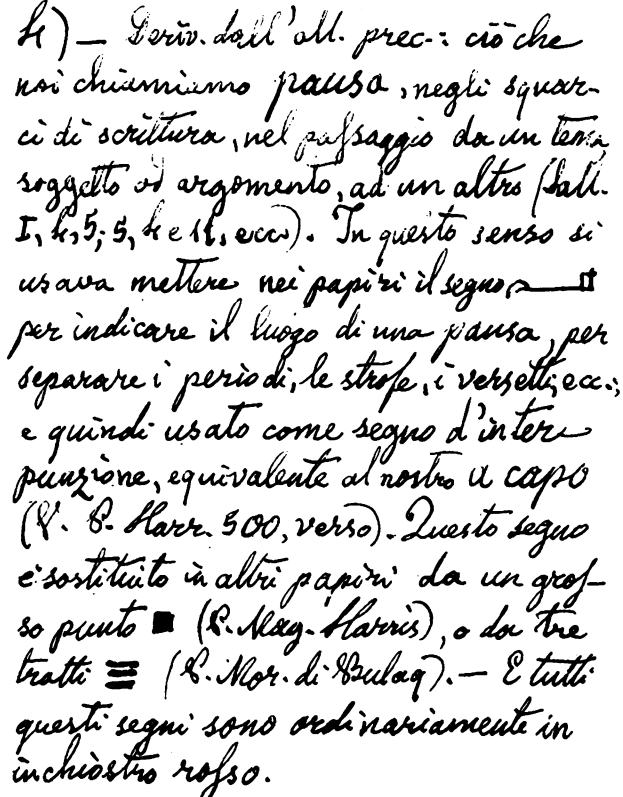 h) — Deriv. dall'all. prec.: ciò che
noi chiamiamo pausa, negli squar-
ci di scrittura, nel passaggio da un tema
soggetto od argomento, ad un altro (Sall.
I, 4, 5; 5, 4 e 11, ecc.). In questo senso si
usava mettere nei papiri il segno
per indicare il luogo di una pausa, per
separare i periodi, le strofe, i versetti, ecc.;
e quindi usato come segno d'inter
punzione, equivalente al nostro a capo
(V. P. Harr. 500, verso). Questo segno
è sostituito in altri papiri da un gros-
so punto ■ (P. Mag. Harris), o da tre
tratti ☰ (P. Mor. di Bulaq). — E tutti
questi segni sono ordinariamente in
inchiostro rosso.